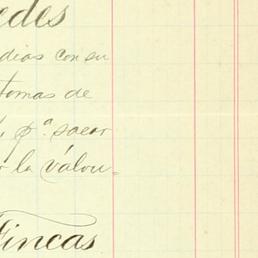 edes
dias con su
tomas de
, pª. sacar
r la valou=
Fincas